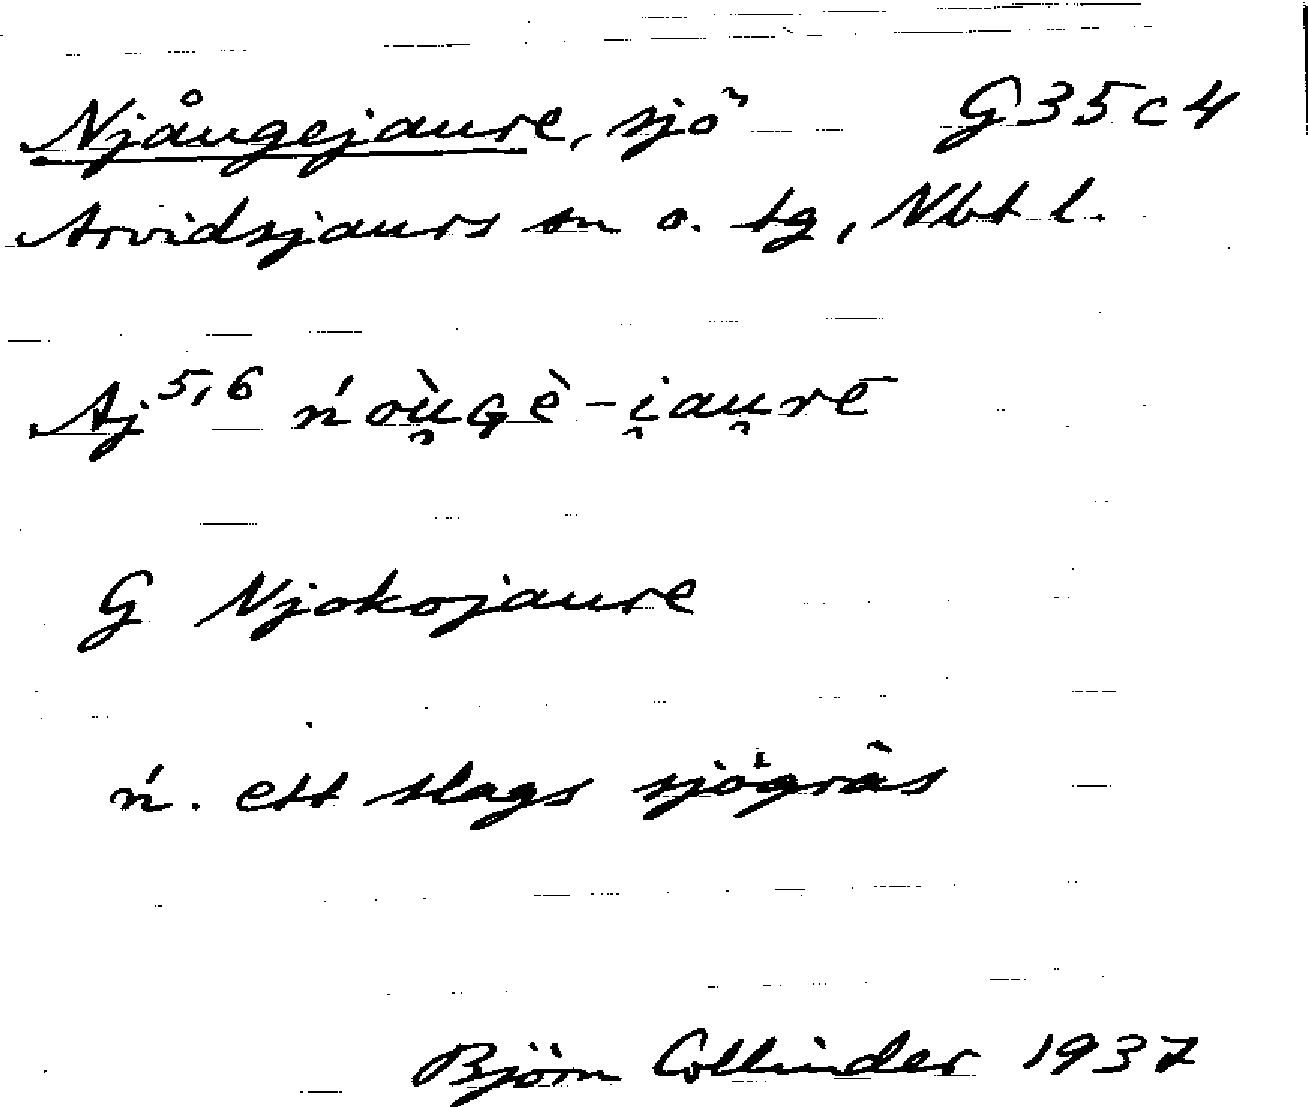 Njåugejaure, sjö G35c4
Arvidsjaurs sn o. tg, Nbt l.
Aj 5,6 ńoù̯ɢè-i̯au̯rē
G Njokojaure
ń. ett slags sjögräs
Björn Collinder 1937